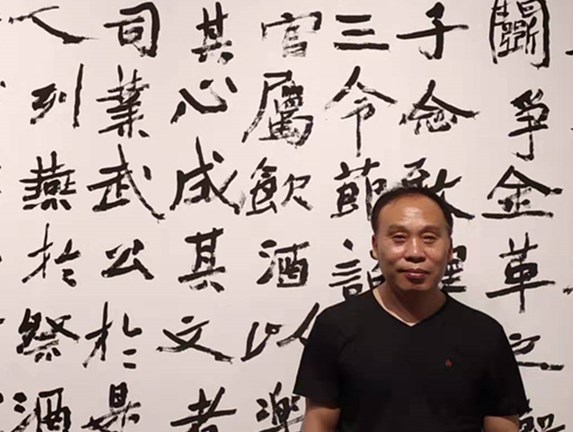 鬭爭金革之
子念致
三令節詔
官屬飲酒以樂
其心成其文者
司業武公於是
人列燕於祭酒